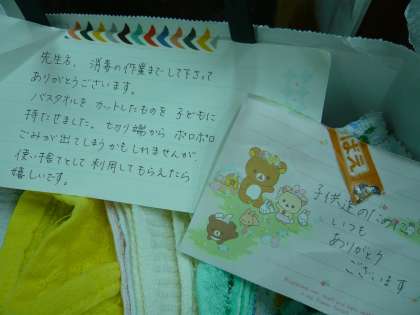 先生方、消毒の作業までして下さって
ありがとうございます。
バスタオルをカットしたものを子どもに
持たせました。切り端から ポロポロ
ごみが出てしまうかもしれませんが
使い捨てとして利用してもらえたら
嬉しいです。
ばえ
子供達のために
いつも
ありがとう
ございます